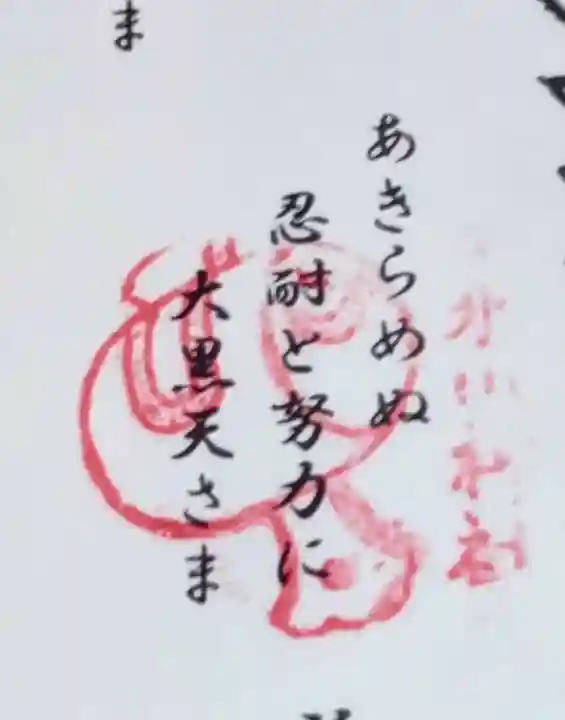 あきらめぬ
忍耐と努力に
大黒天さま
ま